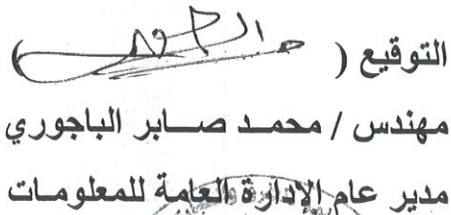 التوقيع (              )
مهندس / محمد صابر الباجوري
مدير عام الإدارة العامة للمعلومات